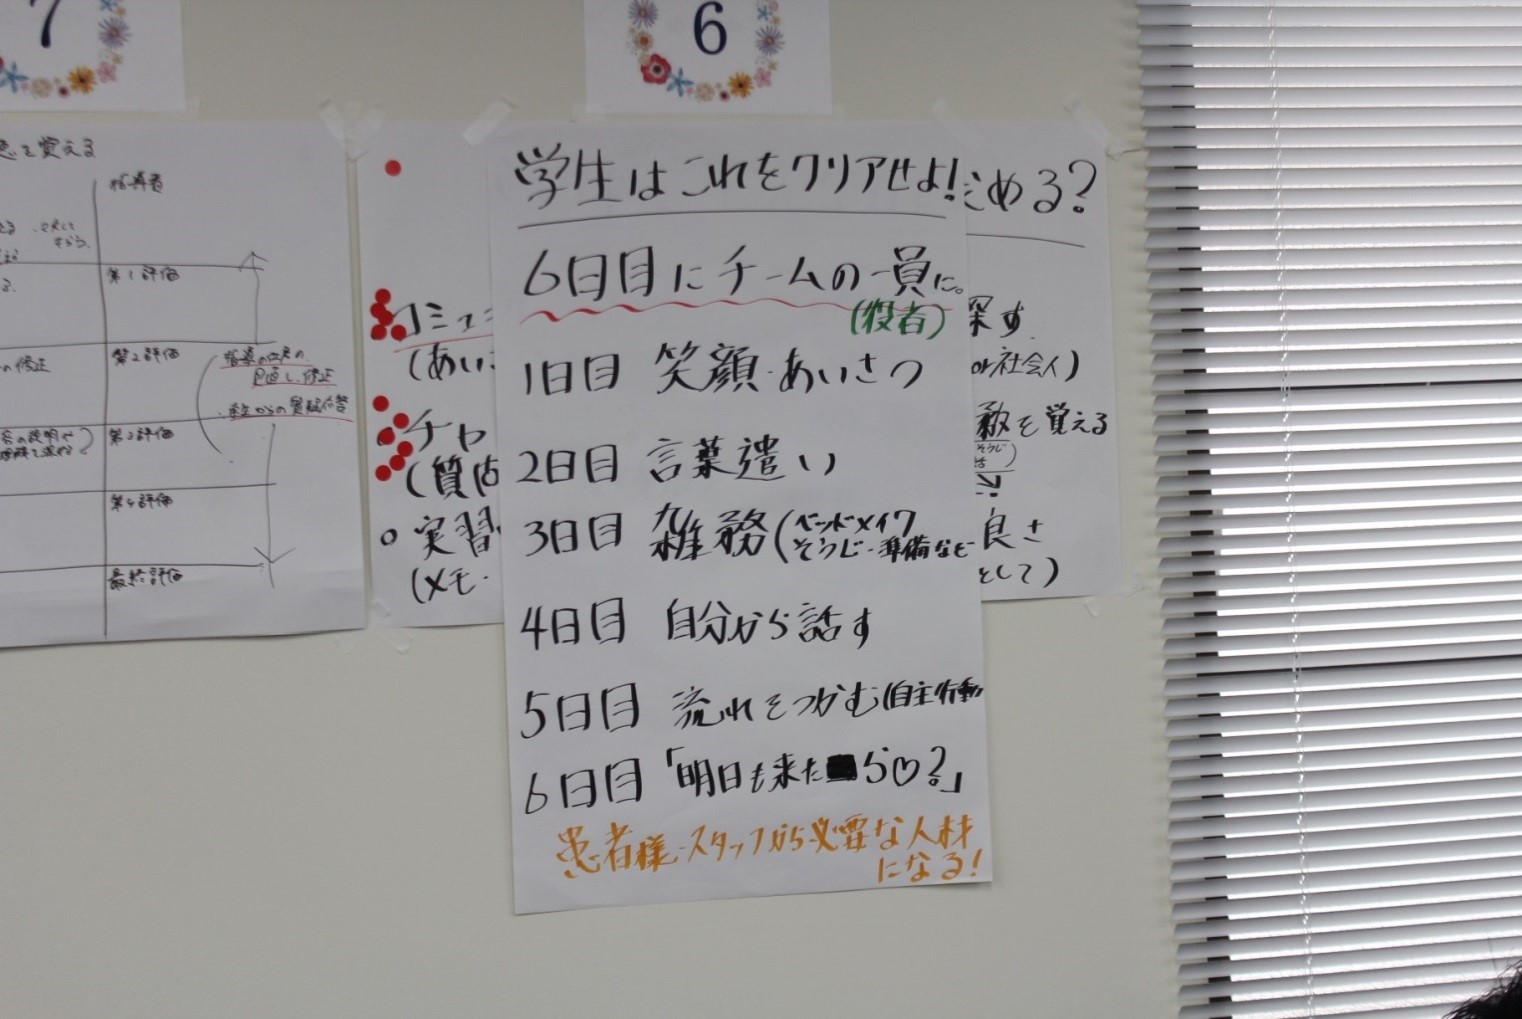 7
6
を覚える
指導者
第1評価
第2評価
の修正
指導の位置の
見直し、修正
第3評価
第4評価
最終評価
コミュニ
(あい
チャ
(質
実習
(メモ・
学生はこれをクリアせよ!
める?
6日目にチームの一員に。
(役者)
1日目 笑顔・あいさつ
2日目 言葉遣い
3日目 雑務(ベッドメイク
そうじ・準備など
4日目 自分から話す
5日目 流れをつかむ(自主行動
6日目「明日も来たら♡?」
患者様・スタッフから必要な人材
になる!
探す
or社会人)
を覚える
良さ
として)